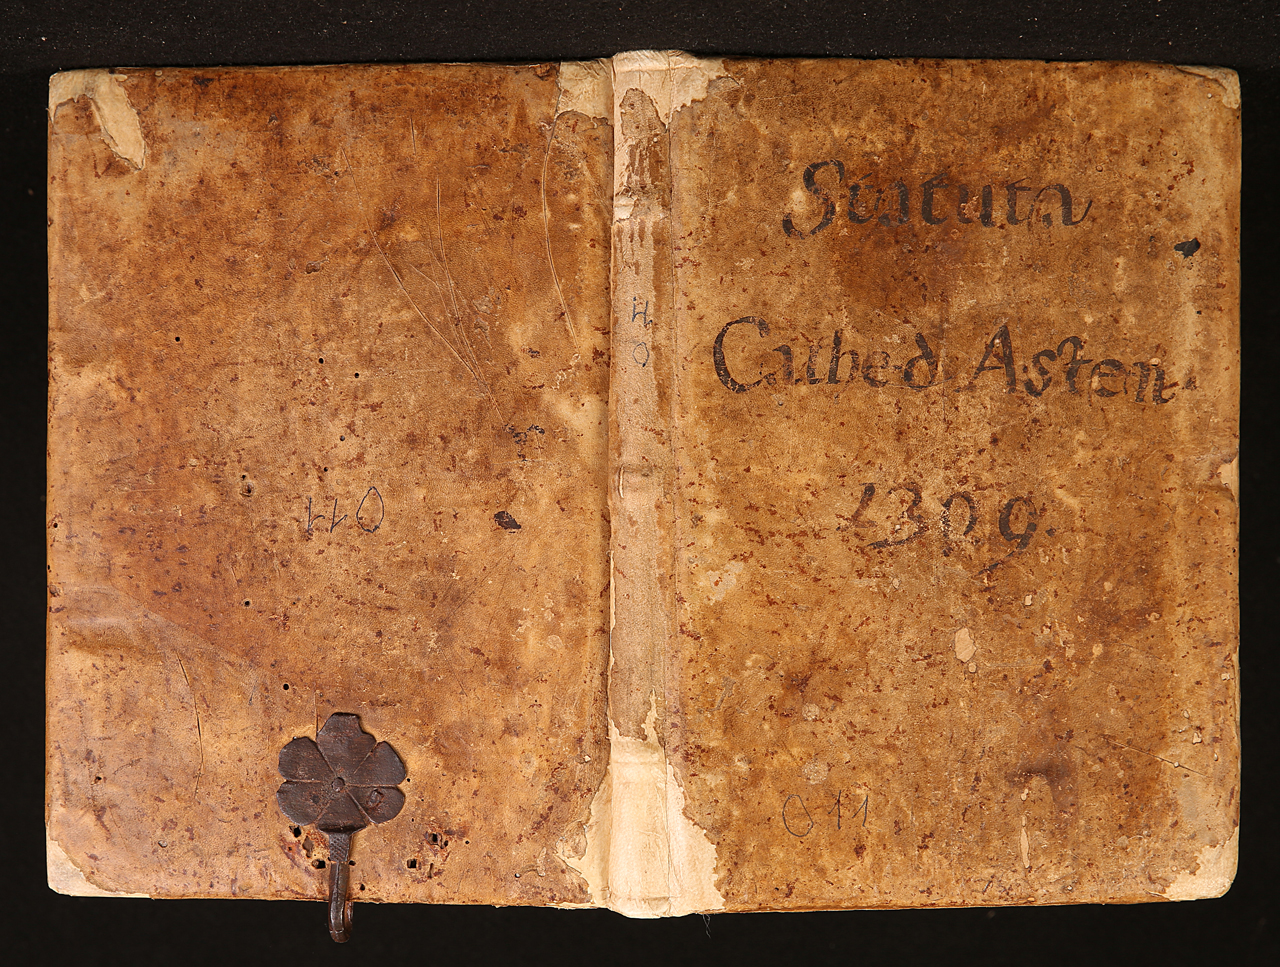 Statuta
Cathed Asten
1309.
011
110